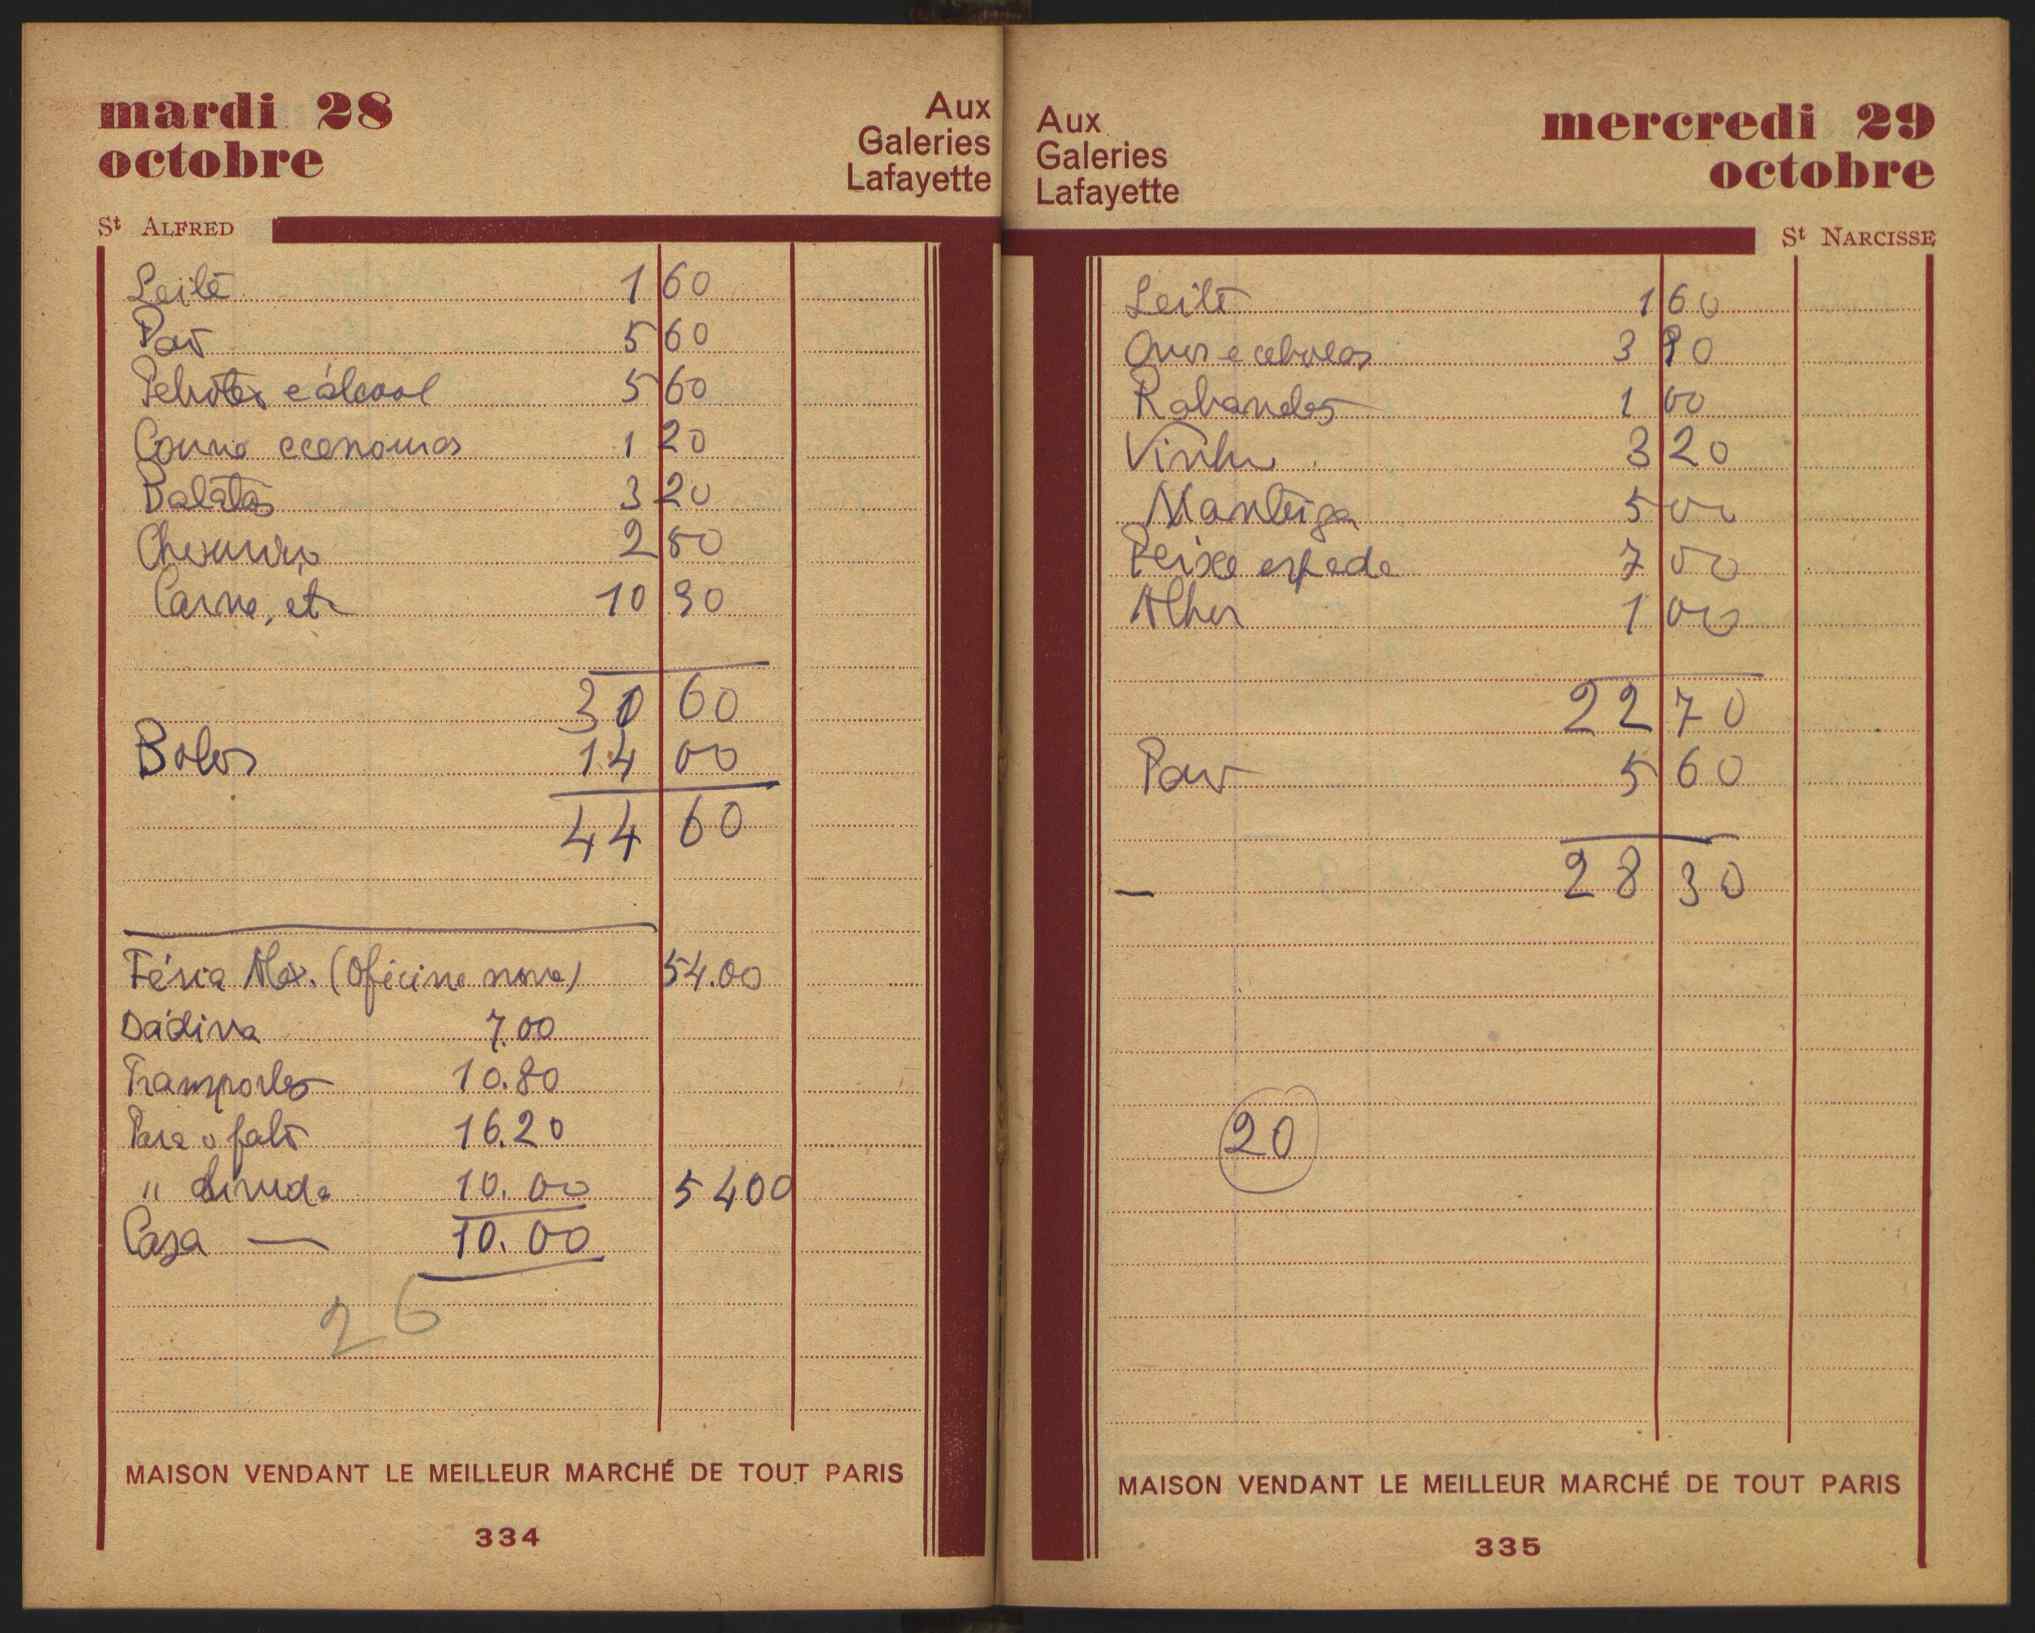 mardi 28
octobre
Aux
Galeries
Lafayette
St ALFRED
Leite 1 60
Pão 5 60
e álcool 5 60
1 20
Batatas 3 20
2 80
Carne, etc 10 90
30 60
Bolos 14 00
44 60
Féria Alex. (Oficina nova) 54.00
Dádiva 7.00
Transportes 10.80
Para o fato 16.20
" 10.00 5400
Casa — 10.00
26
MAISON VENDANT LE MEILLEUR MARCHÉ DE TOUT PARIS
334
Aux
Galeries
Lafayette
mercredi 29
octobre
St NARCISSE
Leite 1 60
Ovos e cebolas 3 90
Rabanetes 1 00
Vinho 3 20
Manteiga 5 00
Peixe espada 7 00
Alhos 1 00
22 70
Pão 5 60
— 28 30
20
MAISON VENDANT LE MEILLEUR MARCHÉ DE TOUT PARIS
335